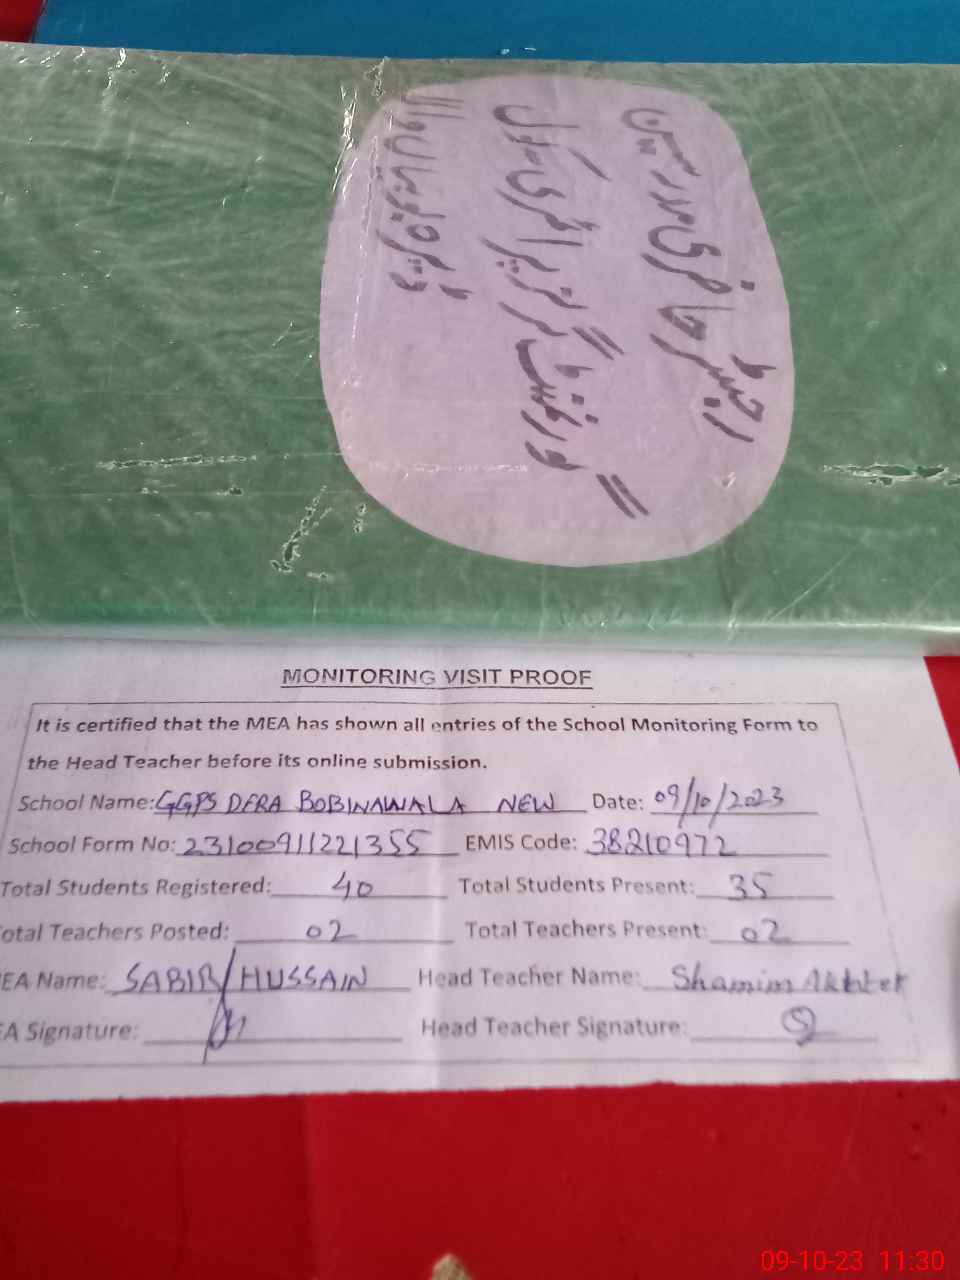 رجسٹر حاضری مدرسین
گورنمنٹ گرلز پرائمری سکول
ڈیرہ
MONITORING VISIT PROOF
It is certified that the MEA has shown all entries of the School Monitoring Form to
the Head Teacher before its online submission.
School Name: GGPS DERA BOBINAWALA NEW Date: 09/10/2023
School Form No: 23100911221355 EMIS Code: 38210972
Total Students Registered: 40 Total Students Present: 35
otal Teachers Posted: 02 Total Teachers Present: 02
EA Name: SABIR HUSSAIN Head Teacher Name: Shamim Akhter
EA Signature: Head Teacher Signature:
09-10-23 11:30